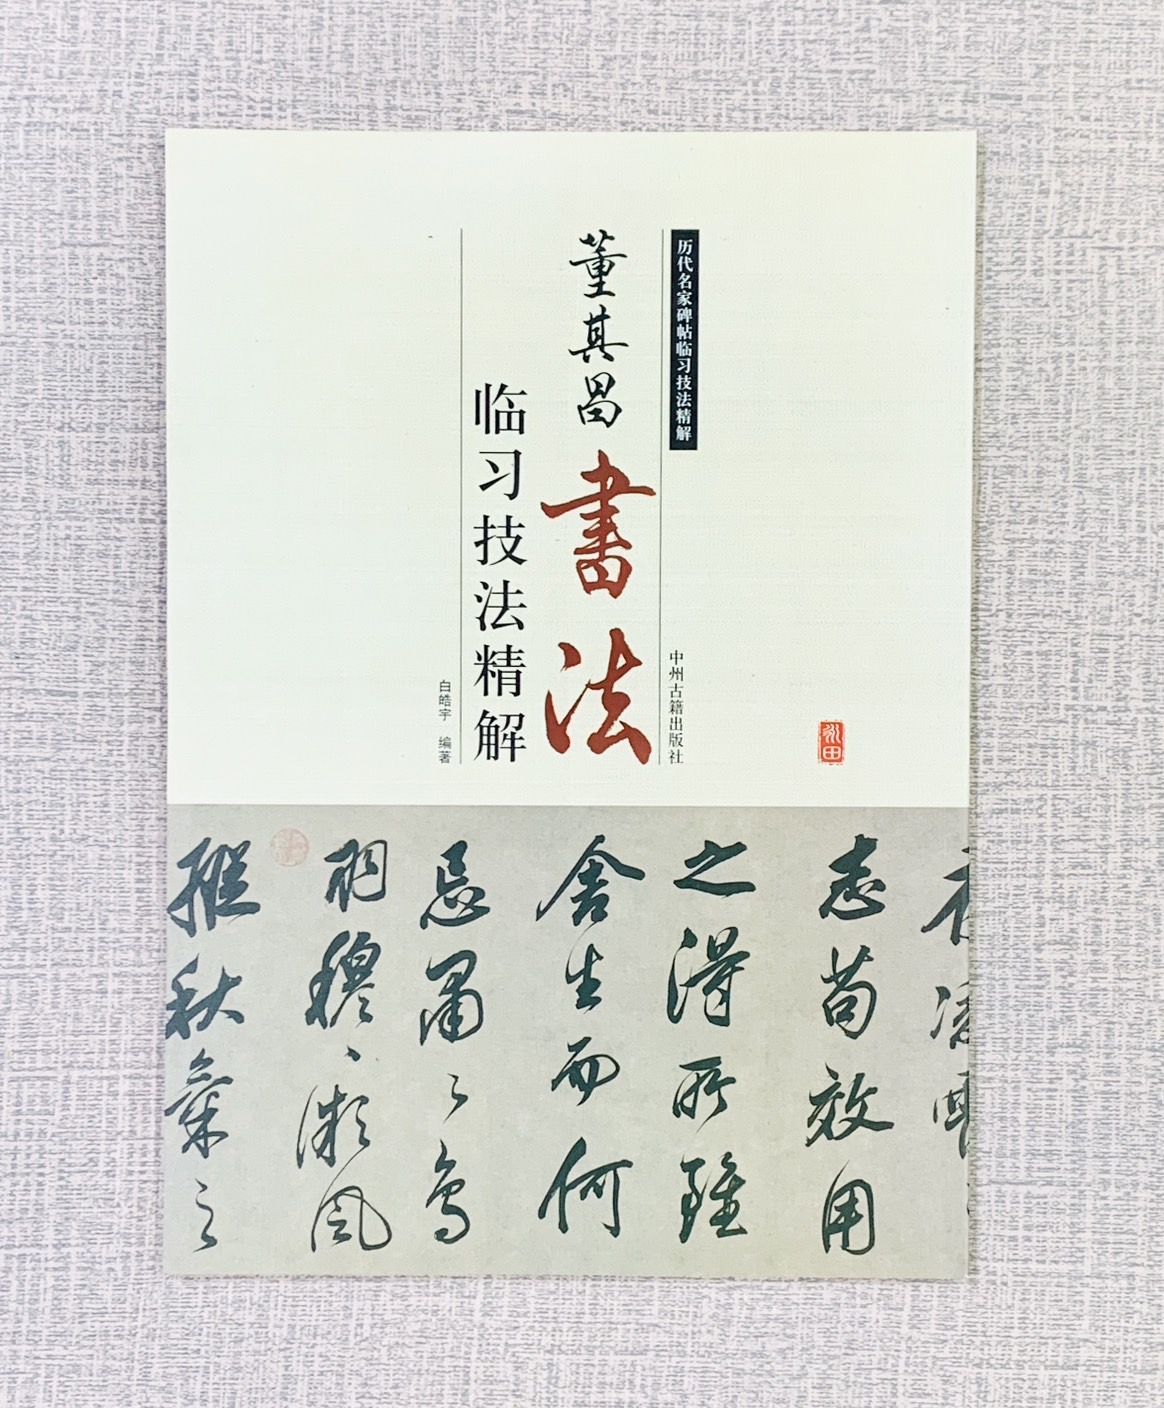 历代名家碑帖临习技法精解
中州古籍出版社
董其昌書法
临习技法精解
白皓宇 编著
志苟效用
之得所雖
舍生而何
忌肅々鳥
羽穆々微風
縱秋氣之